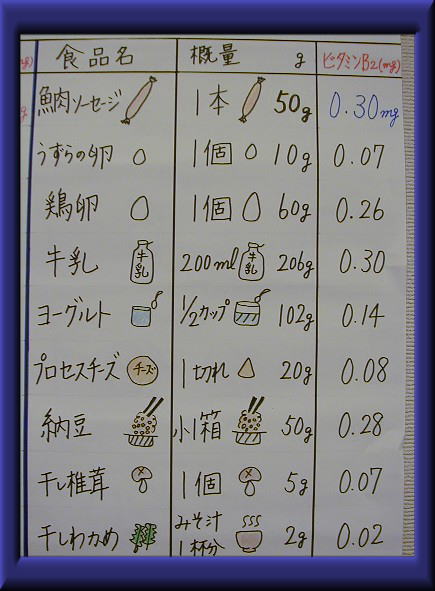 食品名 概量 g ビタミンB2(mg)
魚肉ソーセージ 1本 50g 0.30mg
うずらの卵 1個 10g 0.07
鶏卵 1個 60g 0.26
牛乳 牛乳 200ml 牛乳 206g 0.30
ヨーグルト 1/2カップ 102g 0.14
プロセスチーズ チーズ 1切れ 20g 0.08
納豆 小1箱 50g 0.28
干し椎茸 1個 5g 0.07
干しわかめ みそ汁 2g 0.02
1杯分